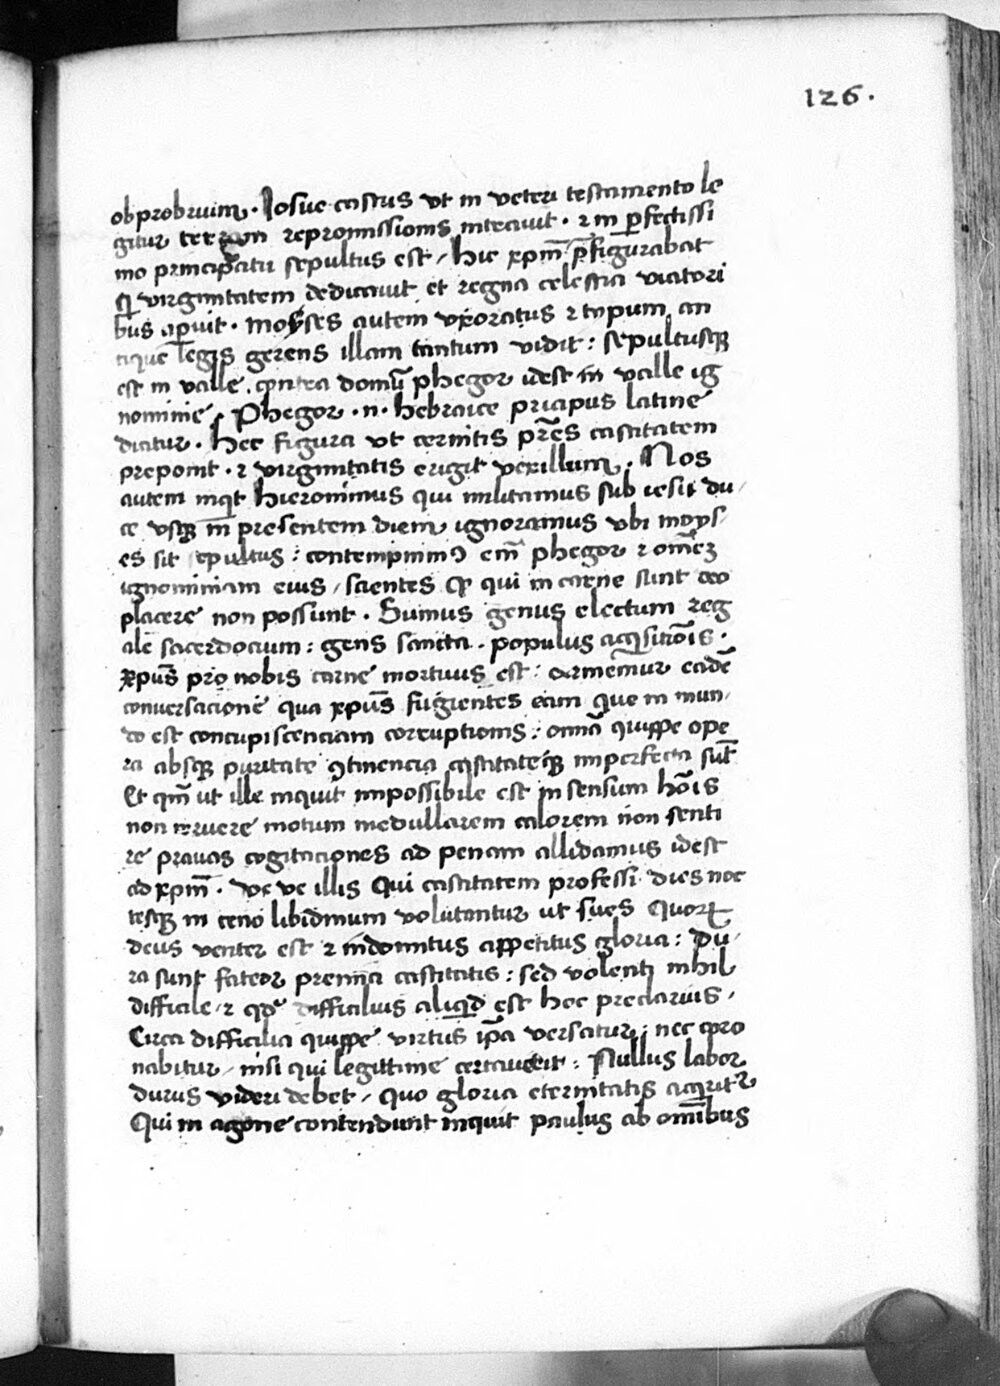 126.
obprobrium. Iosue castus ut in veteri testamento le
gitur terram repromissionis intravit. ⁊ in ꝑfectissi
mo principatu sepultus est / hic xp̄m p̄figurabat
qͥ virginitatem dedicavit et regna celestia viatori
bus aperuit. Moyses autem uxoratus ⁊ typum an
tique legis gerens illam tantum vidit: sepultusqꝫ
est in valle contra domū phegor idest in valle ig
nominie / Phegor .n. hebraice priapus latine
dicitur. Hec figura ut cernitis pr̄es castitatem
preponit. ⁊ virginitatis erigit vexillum. Nos
autem inqͥt hieronimus qui militamus sub iesu du/
ce usqꝫ in presentem diem ignoramus ubi moys/
es sit sepultus: contempnimꝰ em̄ phegor ⁊ om̄eꝫ
ignominiam eius / scientes ꝙ qui in carne sunt deo
placere non possunt. Sumus genus electum reg
ale sacerdocium: gens sancta. populus acq̇sitiōis.
xp̄us pro nobis carne mortuus est: armemur eadē
conversacione qua xp̄us fugientes eam que in mun/
do est concupiscenciam corruptionis: omnia quippe ope
ra absqꝫ puritate ꝯtinencia castitateqꝫ imperfecta sūt
Et qm̄ ut ille inquit impossibile est in sensum hōis
non irruere motum medullarem calorem non senti
re pravas cogitaciones ad penam allidamus idest
ad xp̄m. Ve ve illis Qui castitatem professi dies noc
tesqꝫ in ceno libidinum volutantur ut sues Quorꝝ
deus venter est ⁊ indomitus appetitus gloria: Du/
ra sunt fateor premia castitatis: sed volenti nihil
difficile / ⁊ qd̕ difficilius aliqͥd est hoc preclarius /
Circa difficilia quippe virtus ip̄a versatur: nec coro
nabitur / nisi qui legittime certaverit: Nullus labor
durus videri debet / quo gloria eternitatis acqͥritᷣ
Qui in agone contendunt inquit paulus ab om̄ibus